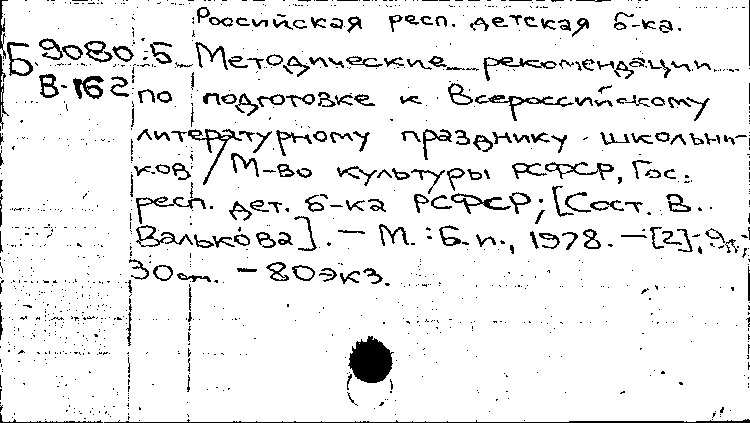 Российская респ. детская б-ка.
Б 9080:Б Методические рекомендации
В-162 по подготовке к Всероссийскому
литературному празднику школьни-
ков / М-во культуры РСФСР, Гос.
респ. дет. б-ка РСФСР; [Сост. В.
Валькова]. — М.: Б.и., 1978. — [2],
30 см. — 80 экз.